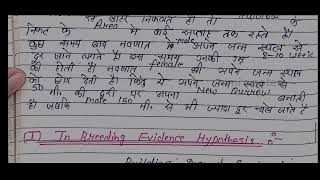 से बाहर निकलते हैं तो Burrow के
निकट के Area में कई सप्ताह तक रहते हैं।
कुछ समय बाद नवजात male अपने जन्म स्थल से
दूर जाने लगते हैं इस समय उनकी उम्र 8-10 week
की होती है। नवजात female भी अपने जन्म स्थान
को छोड़ देती है किंतु वे अपने जन्म स्थल से
50 मी. की दूरी पर अपना New Burrow बनाती
हैं। जबकि male 150 मी. से भी ज्यादा दूर चले जाते हैं
I In Breeding Evidence Hypothesis :-